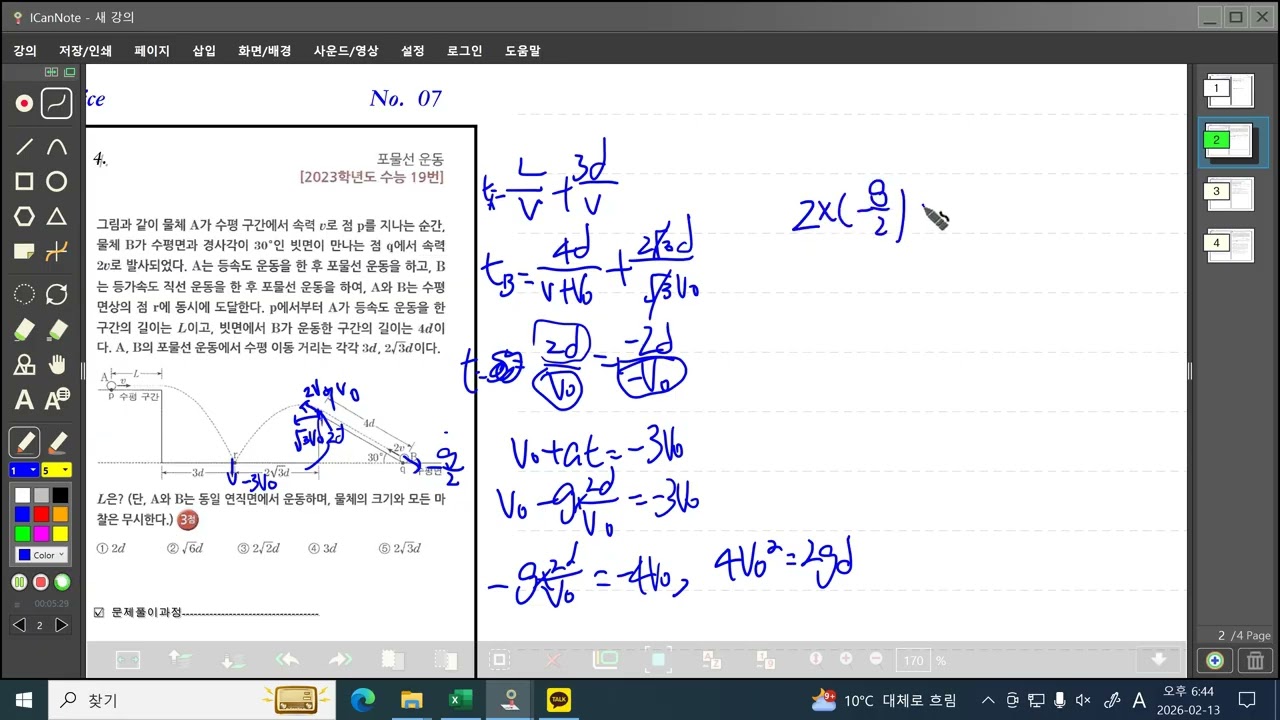 ICanNote - 새 강의
강의 저장/인쇄 페이지 삽입 화면/배경 사운드/영상 설정 로그인 도움말
ice No. 07
4.
포물선 운동
[2023학년도 수능 19번]
그림과 같이 물체 A가 수평 구간에서 속력 v로 점 p를 지나는 순간,
물체 B가 수평면과 경사각이 30°인 빗면이 만나는 점 q에서 속력
2v로 발사되었다. A는 등속도 운동을 한 후 포물선 운동을 하고, B
는 등가속도 직선 운동을 한 후 포물선 운동을 하여, A와 B는 수평
면상의 점 r에 동시에 도달한다. p에서부터 A가 등속도 운동을 한
구간의 길이는 L이고, 빗면에서 B가 운동한 구간의 길이는 4d이
다. A, B의 포물선 운동에서 수평 이동 거리는 각각 3d, 2√3d이다.
L
A v
p 수평 구간
2V₀ V₀
√3V₀ 2d
4d
2v B
30° q 수평면
-g/2
r
3d 2√3d
-3V₀
L은? (단, A와 B는 동일 연직면에서 운동하며, 물체의 크기와 모든 마
찰은 무시한다.) 3점
① 2d ② √6d ③ 2√2d ④ 3d ⑤ 2√3d
☑ 문제풀이과정
t_A = L/V + 3d/V
t_B = 4d/(V+V₀) + 2√3d/√3V₀
t = 2d/V₀ = -2d/-V₀
V₀+at = -3V₀
V₀ - g×2d/V₀ = -3V₀
-g×2d/V₀ = -4V₀, 4V₀² = 2gd
2×(-g/2)
1
2
3
4
A
A
1 5
Color
00:05:29
2
170 %
2 / 4 Page
찾기
TALK
10°C 대체로 흐림
A
오후 6:44
2026-02-13